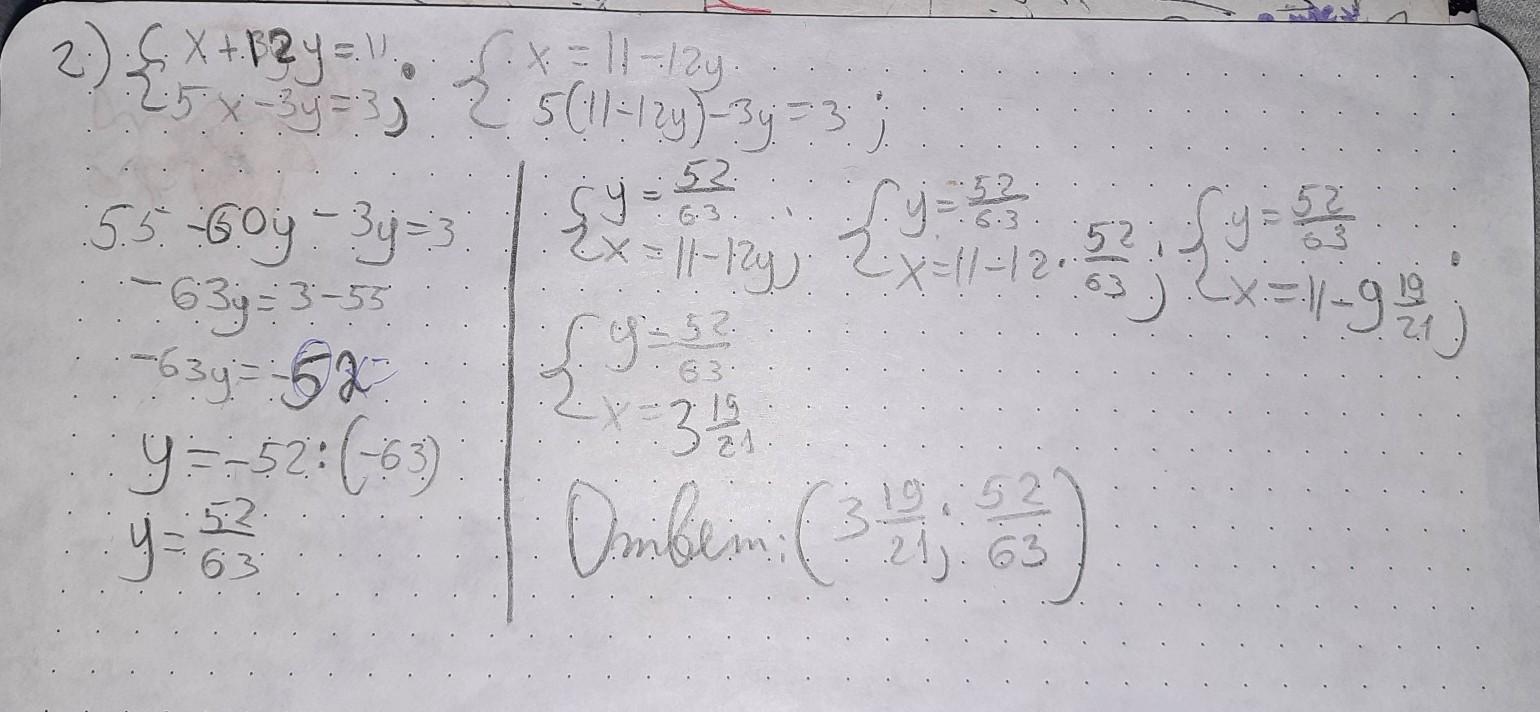 2.) { x+12y=11 ; { x=11-12y
{ 5x-3y=3 ; { 5(11-12y)-3y=3 ;
55-60y-3y=3
-63y=3-55
-63y=-52
y=-52:(-63)
y=52/63
{ y=52/63 ; { y=52/63 ; { y=52/63 ;
{ x=11-12y ; { x=11-12·52/63 ; { x=11-9 19/21 ;
{ y=52/63
{ x=3 19/21
Ответ: (3 19/21; 52/63)